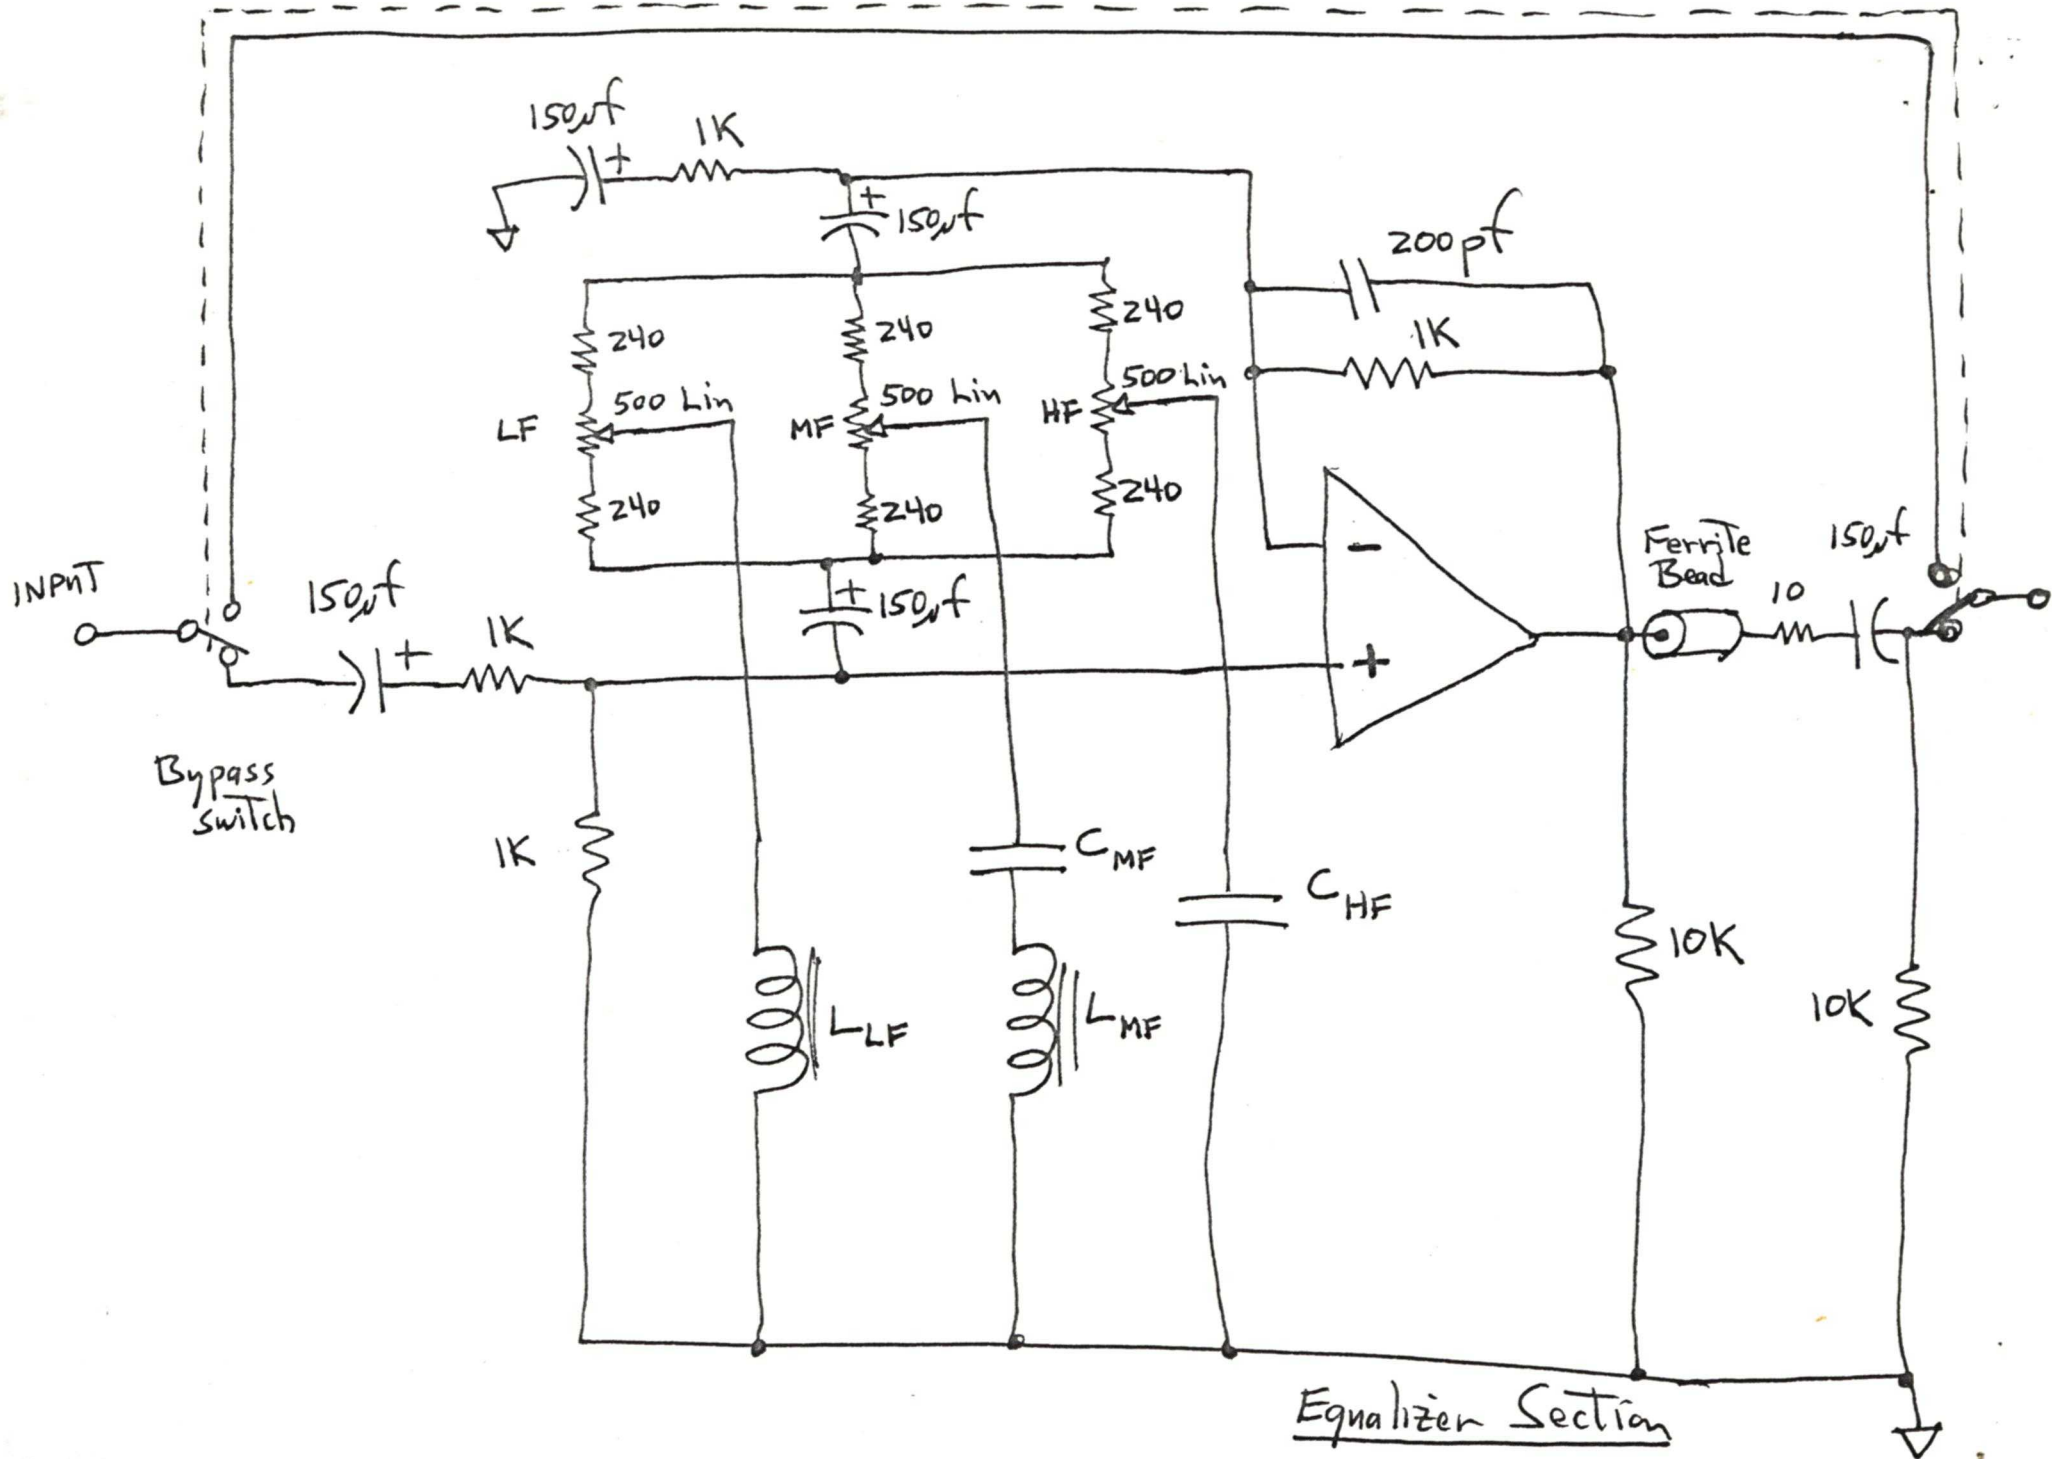 150µf
1K
+
+
150µf
200pf
1K
240
240
240
500 Lin
500 Lin
500 Lin
LF
MF
HF
240
240
240
-
Ferrite
Bead
150µf
10
INPUT
150µf
+
1K
+
150µf
+
Bypass
switch
1K
CMF
CHF
LLF
LMF
10K
10K
Equalizer Section